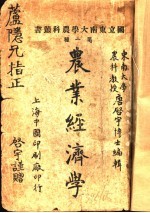 國立東南大學農科叢書
第一種
東南大學
農科教授
唐啓宇博士編輯
農業經濟學
上海中國印刷廠印行
蘆隱兄指正
啓宇謹贈